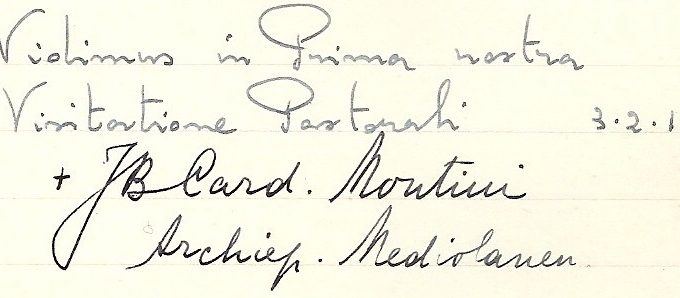 Vidimus in Prima nostra
Visitatione Pastorali 3.2.1
+ JB Card. Montini
Archiep. Mediolanen.